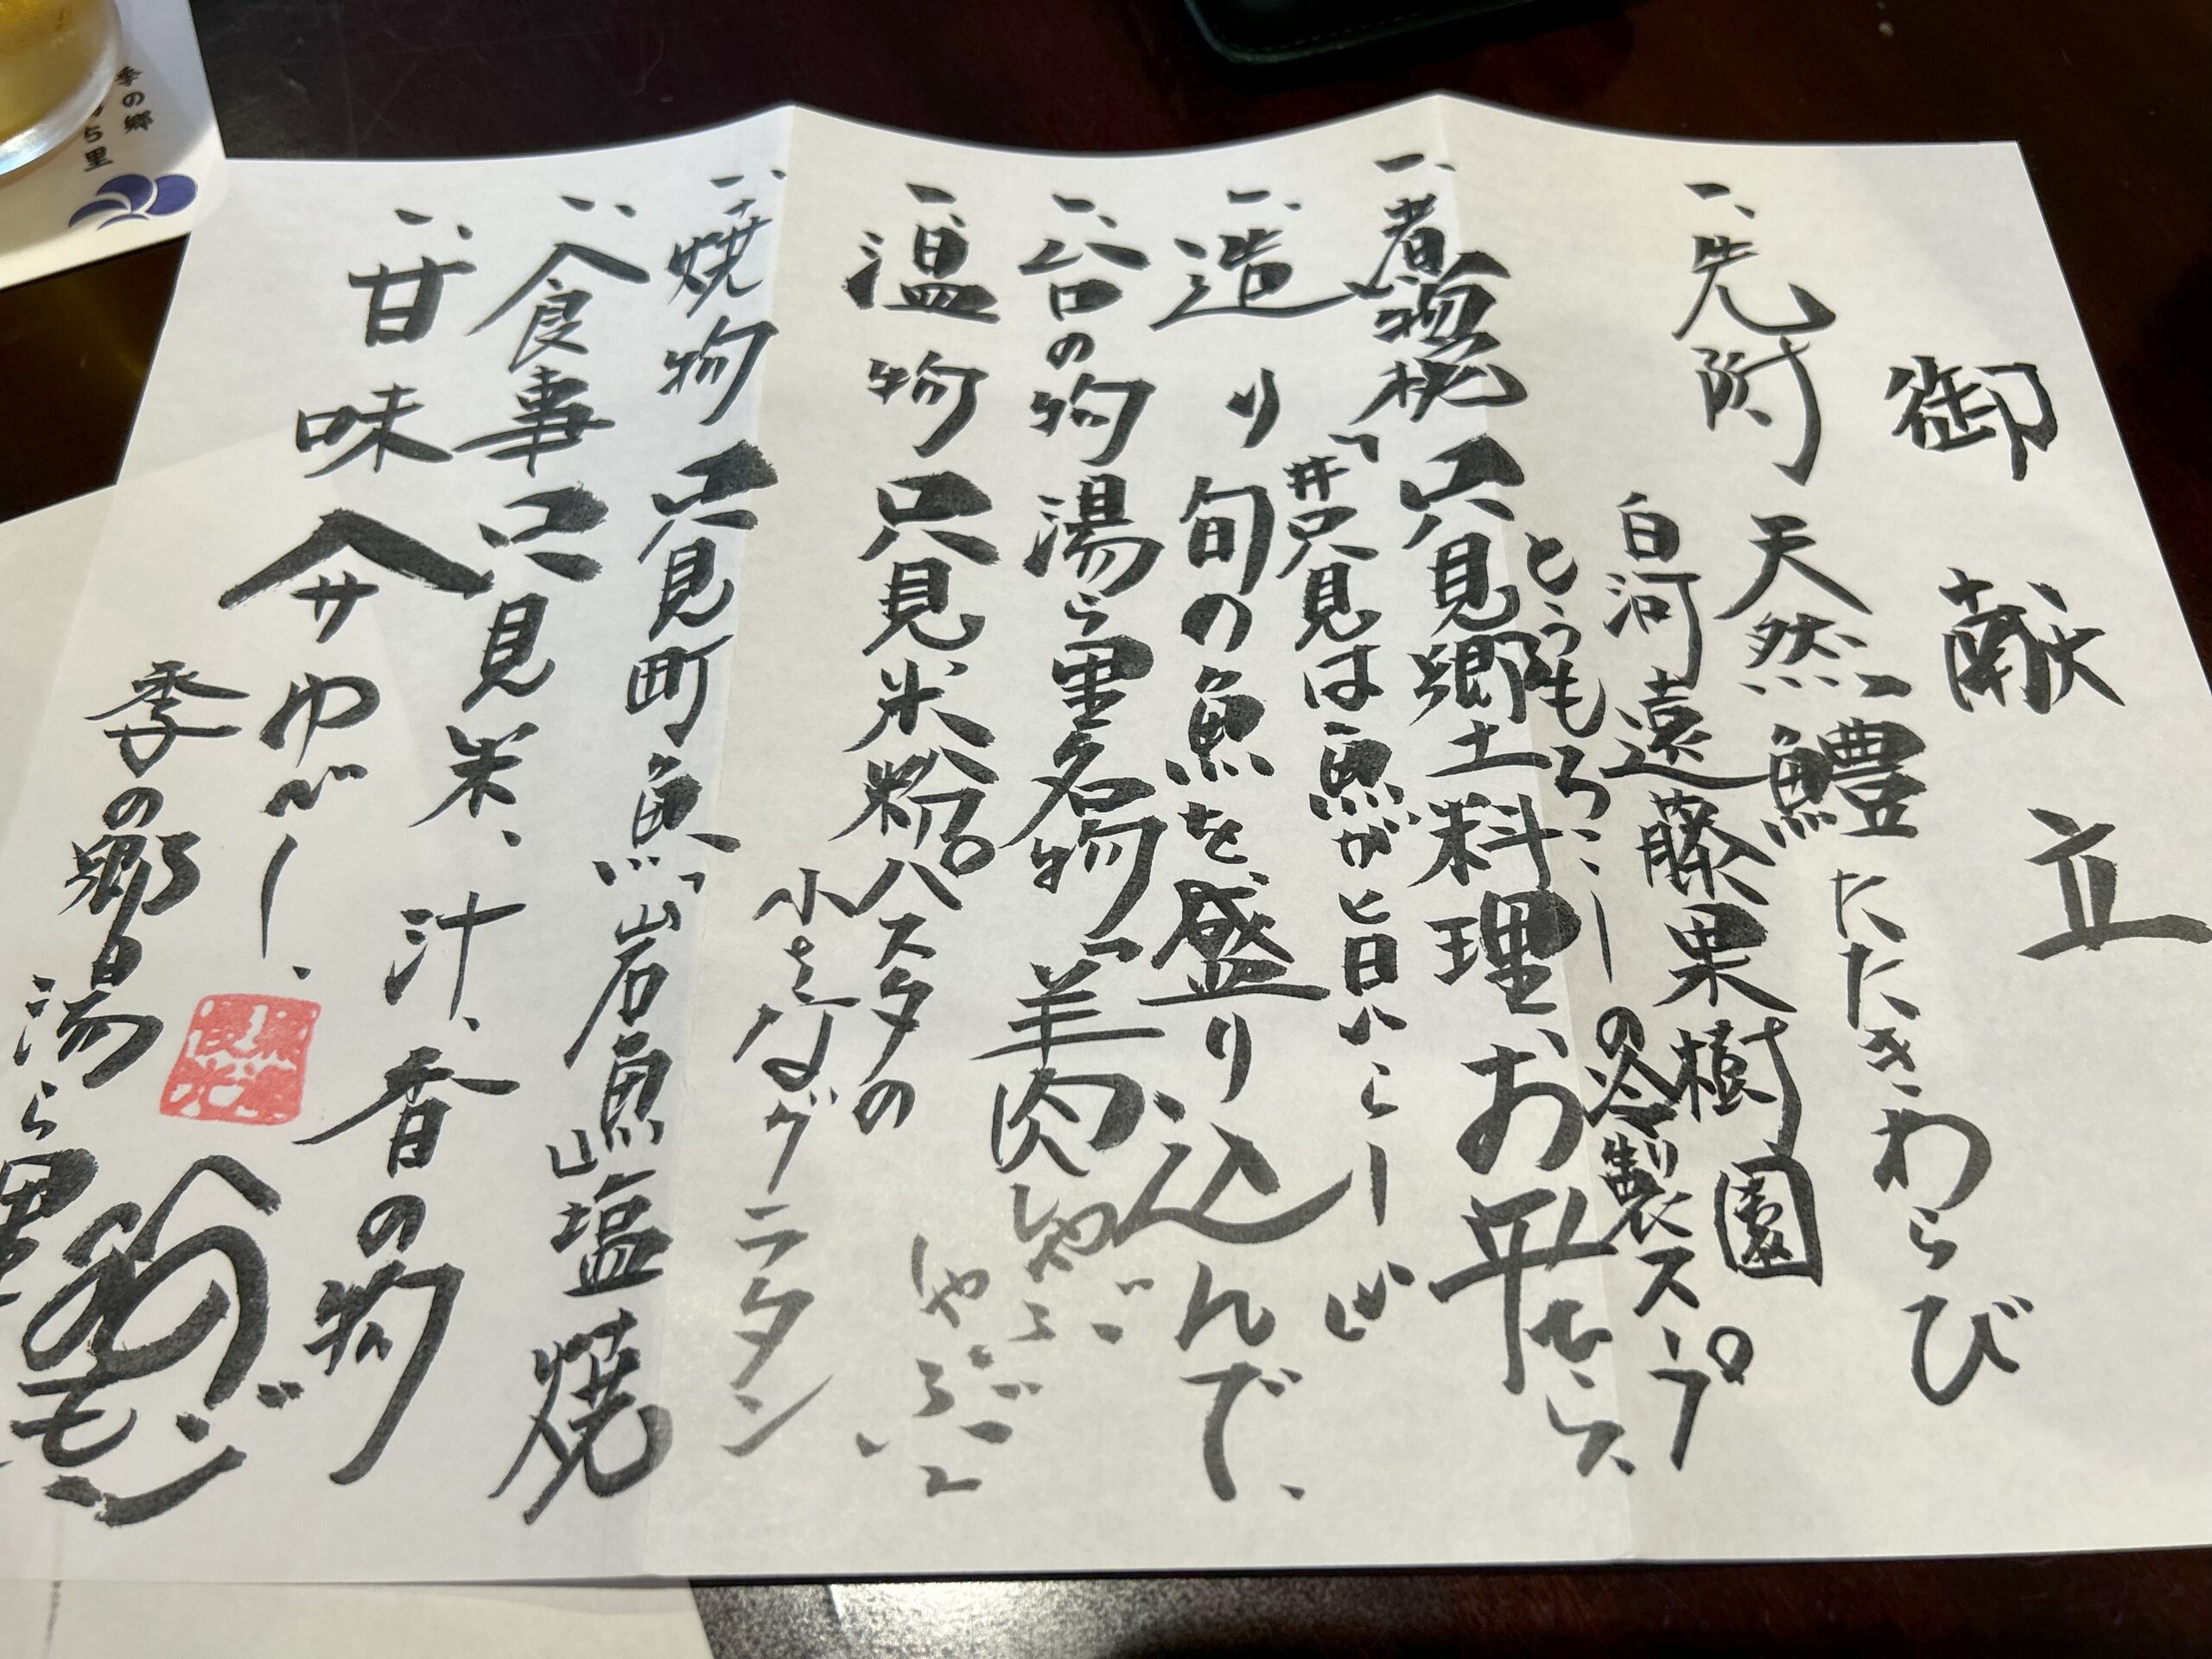 御献立
一、先附 天然鱧たたきわらび
白河遠藤果樹園
とうもろこしの冷製スープ
一、煮物椀 只見郷土料理、お平
「井戸
只見は魚が旨い
一、造り 旬の魚を盛り込んで、
一、台の物 湯ら里名物 羊肉しゃぶしゃぶ
一、温物 只見米粉パスタの
小さなグラタン
一、焼物 只見町魚 岩魚塩焼
一、食事 只見米、汁、香の物
一、甘味
季の郷湯ら里
季の郷
ら里